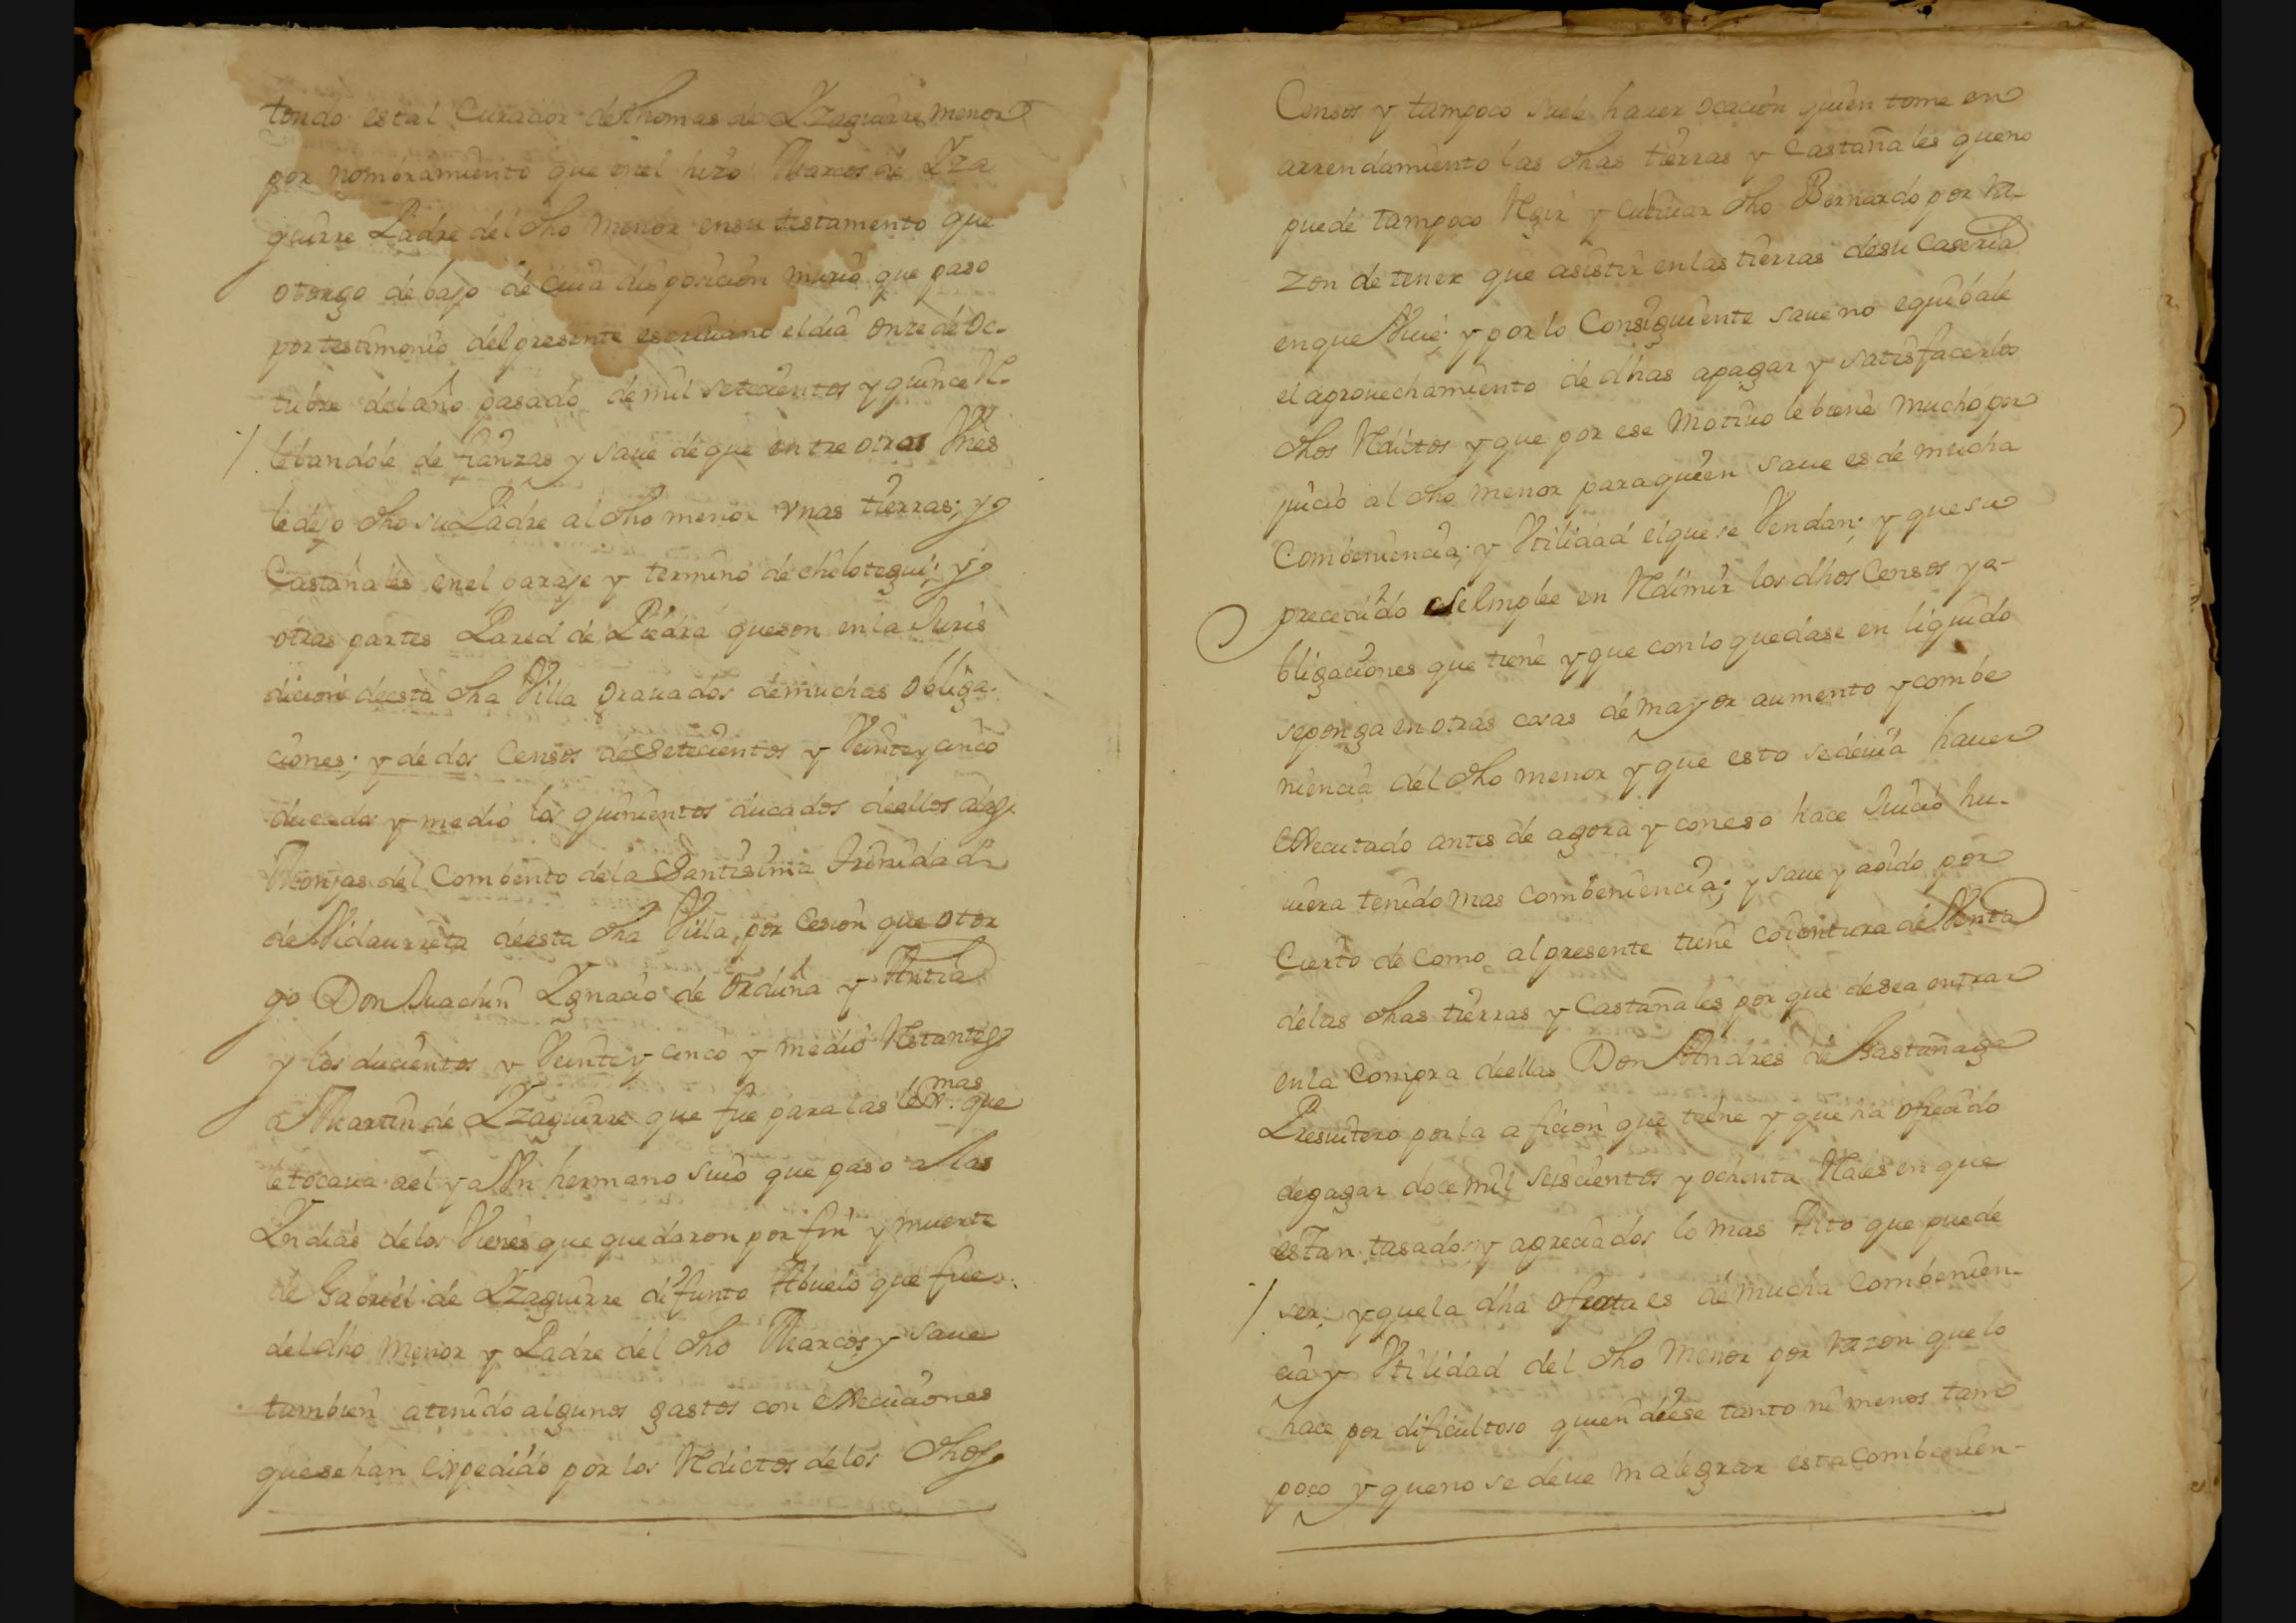 tendo es tal Curador de Thomas de Yzaguirre menor
por nombramiento que en el hizo Marcos de Yza
guirre Padre del dho menor en su testamento que
otorgo debajo de cuia disposicion murio que paso
por testimonio del presente escriuano el dia onze de oc-
tubre del año pasado de mil setecientos y quince Re-
lebandole de fianzas y saue de que entre otros Vnes
le dejo dho su Padre al dho menor vnas tierras; y
Castañales en el paraje y termino de chelotegui; y
otras partes Pared de Piedra que son en la Juris
dicion de esta dha Villa grauados de muchas obliga-
ciones; y de dos Censos de setecientos y Veinte y cinco
ducados y medio los quinientos ducados de ellos a las
Monjas del Combento de la Santisima Trinidad
de Vidaurreta de esta dha Villa, por Cesion que otor
go Don Juachin Ygnacio de Orduña y Antia
y los ducientos y Veinte y cinco y medio Restantes
a Martin de Yzaguirre que fue para las lexmas que
le tocaua a el y a Vn hermano suio que paso a las
Yndias de los Vienes que quedaron por fin y muerte
de Gabriel de Yzaguirre difunto Abuelo que fue
del dho menor y Padre del dho Marcos y saue
tambien a tenido algunos gastos con execuciones
que se han expedido por los Redictos de los dhos
Censos y tampoco suele hauer ocacion quien tome en
arrendamiento las dhas tierras y Castañales que no
puede tampoco Regir y cutiuar dho Bernardo por ra-
zon de tener que asistir en las tierras de su Caseria
en que Viue; y por lo Consiguiente saue no equibale
el aprouechamiento de dhas a pagar y satisfacer los
dhos Redictos y que por ese motiuo le biene mucho per
juicio al dho menor para quien saue es de mucha
Combeniencia; y Vtilidad el que se Vendan; y que su
precedido se Emplee en Redimir los dhos Censos y o-
bligaciones que tiene y que con lo quedase en liquido
se ponga en otras cosas de mayor aumento y combe
niencia del dho menor y que esto se deuia hauer
executado antes de agora y con eso hace Juicio hu-
uiera tenido mas combeniencia; y saue y a oido por
Cierto de como al presente tiene coiontura de Venta
de las dhas tierras y Castañales por que desea entrar
en la Compra de ellas Don Andres de Gastañaga
Presuitero por la aficion que tiene y que ha ofrecido
de pagar doce mil seiscientos y ochenta Reales en que
estan tasados y apreciados lo mas Alto que puede
ser; y que la dha oferta es de mucha combenien-
cia y Vtilidad del dho menor por razon que lo
hace por dificultoso quien diese tanto ni menos tam
poco y que no se deue malegrar esta combenien-